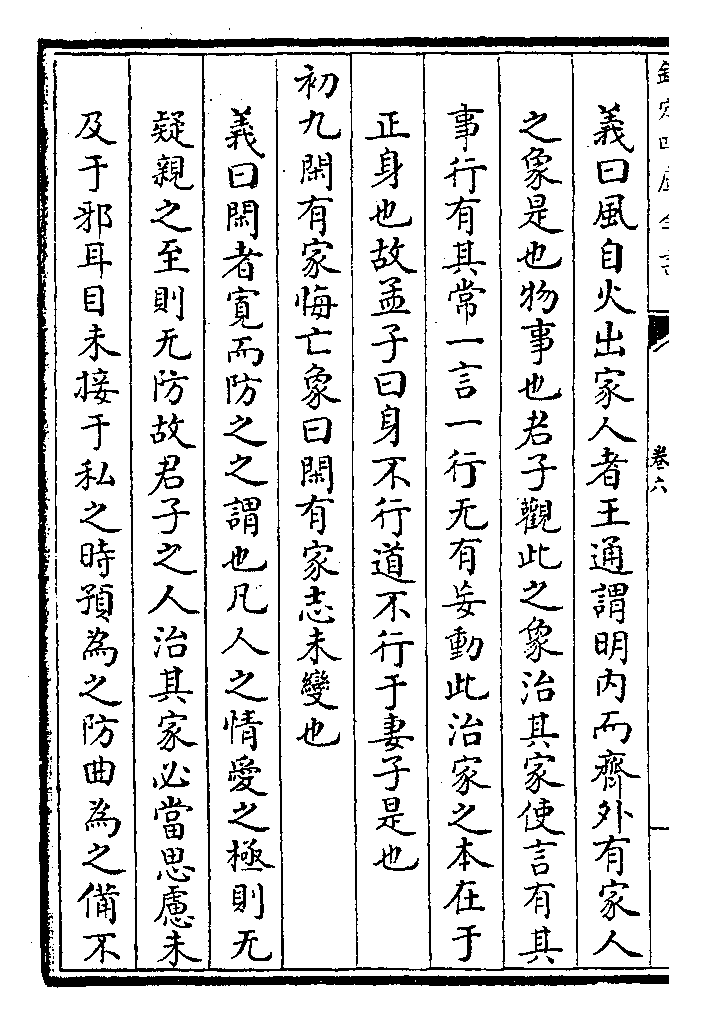 欽定四庫全書
卷六
義曰風自火出家人者王通謂明內而齊外有家人
之象是也物事也君子觀此之象治其家使言有其
事行有其常一言一行无有妄動此治家之本在于
正身也故孟子曰身不行道不行于妻子是也
初九閑有家悔亡象曰閑有家志未變也
義曰閑者寛而防之之謂也凡人之情愛之極則无
疑親之至則无防故君子之人治其家必當思慮未
及于邪耳目未接于私之時預為之防曲為之備不